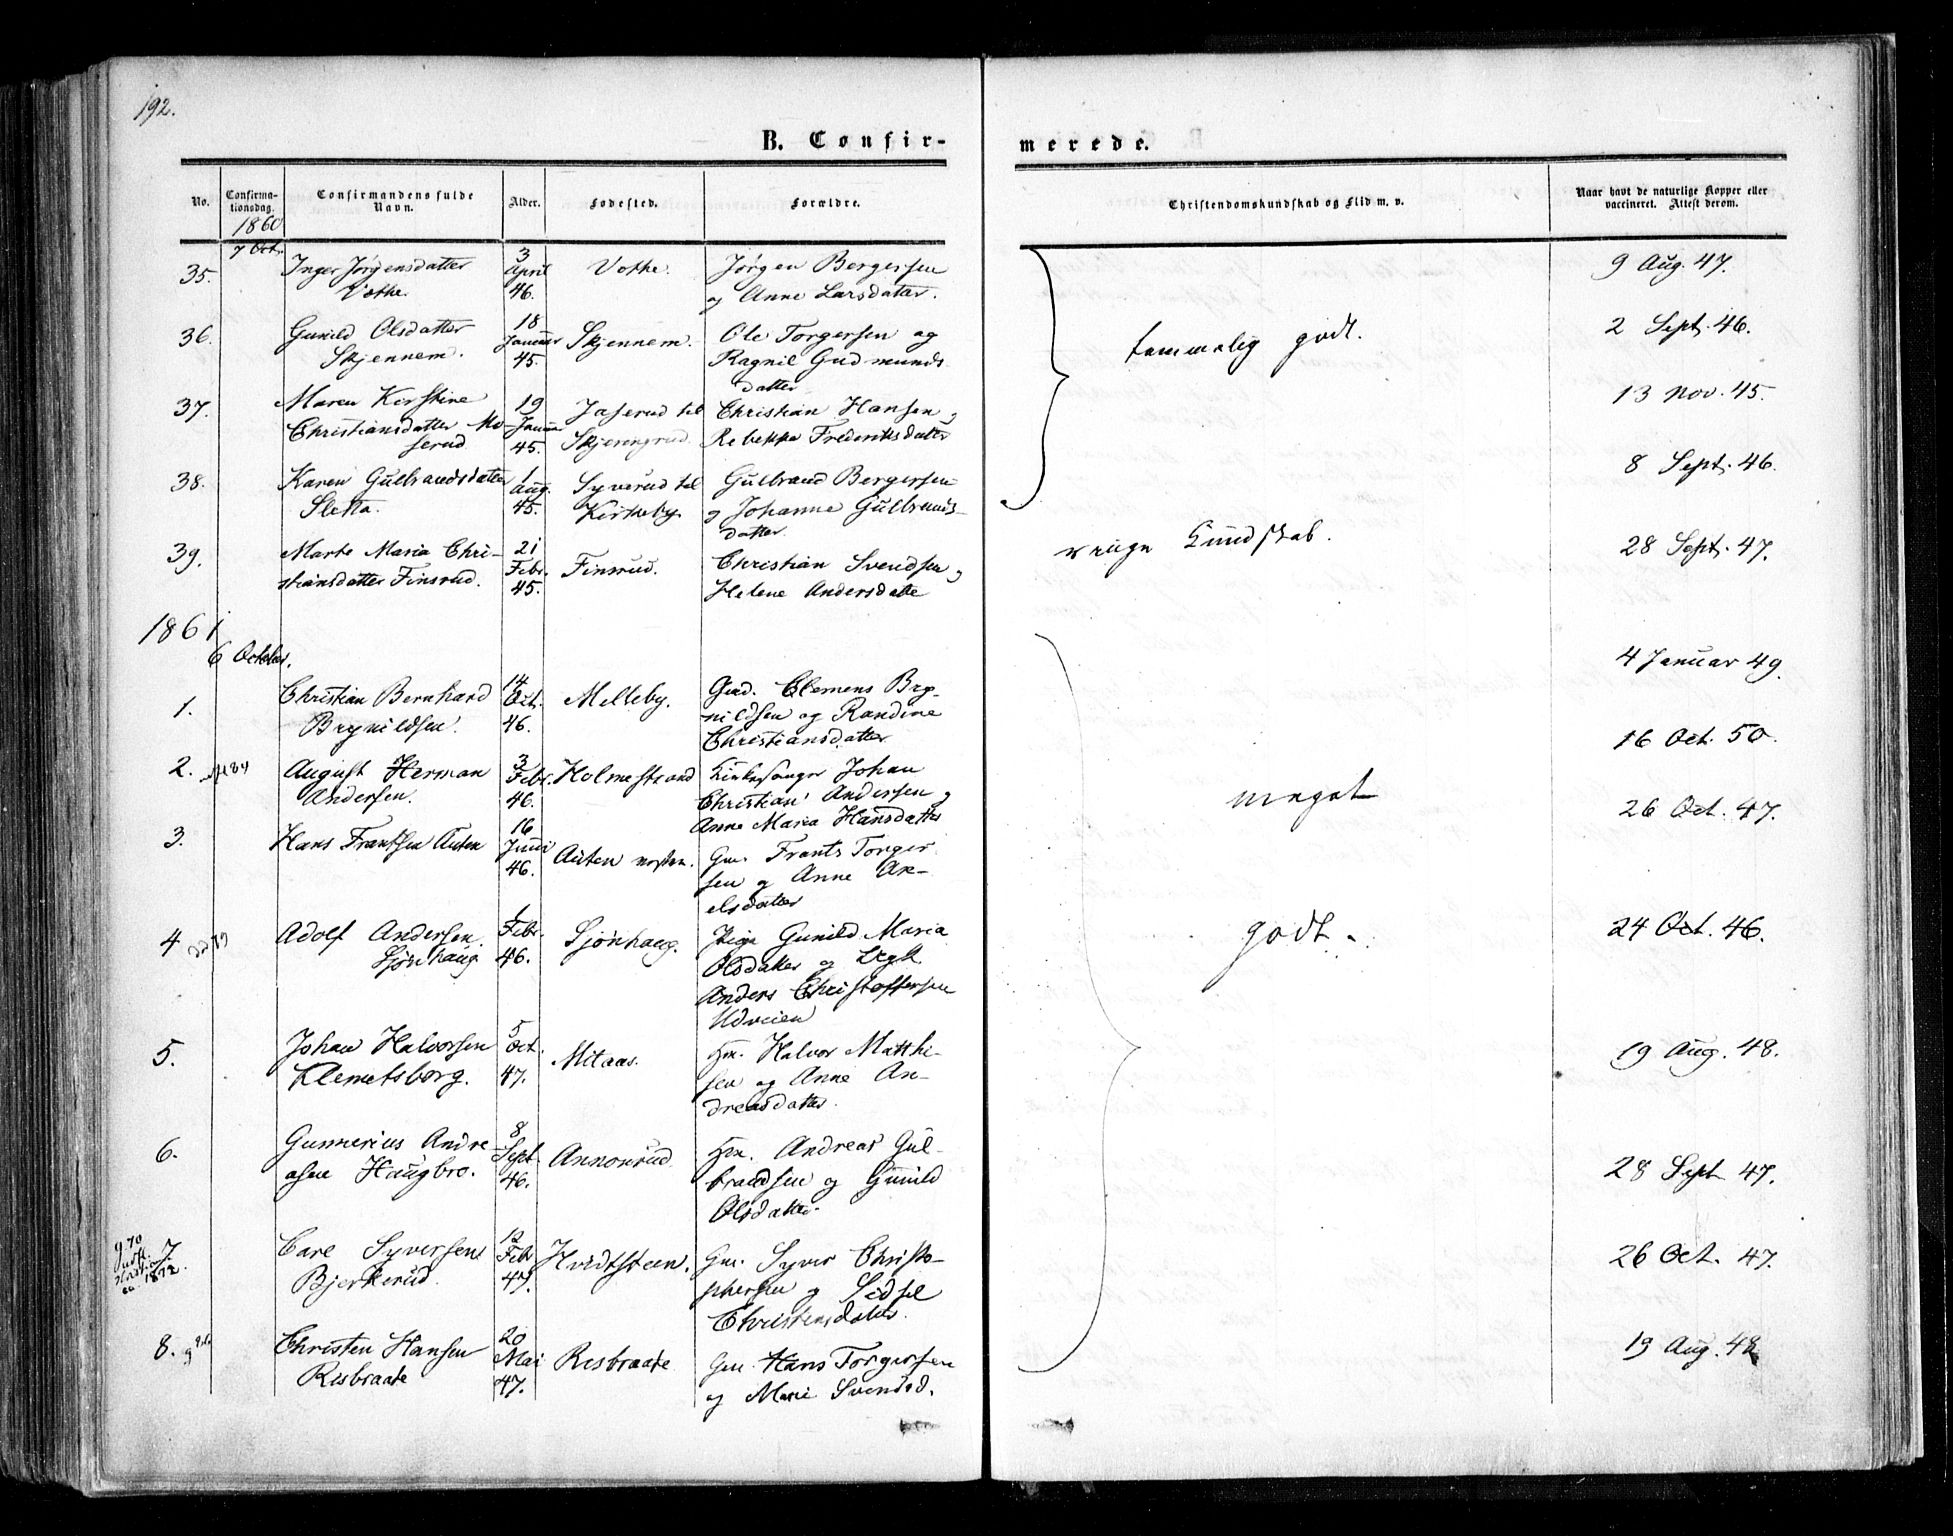 192.
B. Confir-
merede.
No.
Confirma-
tionsdag.
Confirmandens fulde
Navn.
Alder.
Fødested.
Forældre.
Christendomskundskab og Flid m. v.
Naar havt de naturlige Kopper eller
vaccineret. Attest derom.
1860
7 Oct.
35.
Inger Jørgensdatter
Vothe.
3
April
46.
Vothe.
Jørgen Bergersen
og Anne Larsdatter.
9 Aug. 47.
36.
Gunild Olsdatter
Skjennem.
18
Januar
45.
Skjennem.
Ole Torgersen og
Ragnil Gudmunds
datter
temmelig godt.
2 Sept. 46.
37.
Maren Kirstine
Christiansdatter Mo-
serud
19
Januar
45.
Jaserud til
Skjerengrud.
Christian Hansen og
Rebekka Frederiksdatter
13 Nov. 45.
38.
Karen Gulbrandsdatter
Sletta.
1
Aug.
45.
Syverud til
Kirkeby.
Gulbrand Bergersen
og Johanne Gulbrands-
datter.
8 Sept. 46.
39.
Marte Maria Chri-
stiansdatter Finsrud.
21
Febr.
45.
Finsrud.
Christian Svendsen og
Helene Andersdatte
ringe Kundskab.
28 Sept. 47.
1861
6 October.
1.
Christian Bernhard
Brynildsen.
14
Oct.
46.
Melleby.
Gmd. Clemens Bry-
nildsen og Randine
Christiansdatter
4 Januar 49.
2.
August Herman
Andersen.
3
Febr.
46.
Holmestrand
Kirkesanger Johan
Christian Andersen og
Anne Maria Hansdatter
meget
16 Oct. 50.
3.
Hans Frantsen Auten
16
Juni
46.
Auten nostre.
Gm. Frants Torger
sen og Anne Ax-
elsdatter
26 Oct. 47.
4
Adolf Andersen
Sjønhaug
1
Febr.
46.
Sjønhaug.
Pige Gunild Maria
Olsdatter og Ugk.
Anders Christoffersen
Udveien
godt.
24 Oct. 46.
5.
Johan Halvorsen
Klemetsborg.
5
Oct.
47.
Mitaas.
Hm. Halvor Matthi-
sen og Anne An-
dreasdatter.
19 Aug. 48.
6.
Gunnerius Andre
asen Haugbro.
8
Sept.
46.
Annonrud
Hm. Andreas Gul-
brandsen og Gunild
Olsdatter.
28 Sept 47.
7.
1872.
Carl Syversen
Bjerkerud.
12
Febr
47.
Hvidtsteen.
Gm. Syver Christo-
phersen og Sidsel
Christensdatter.
26 Oct. 47.
8.
Christen Hansen
Risbraate
20
Mai
47.
Risbraate
Gm. Hans Torgersen
og Marie Svendsd.
19 Aug. 48